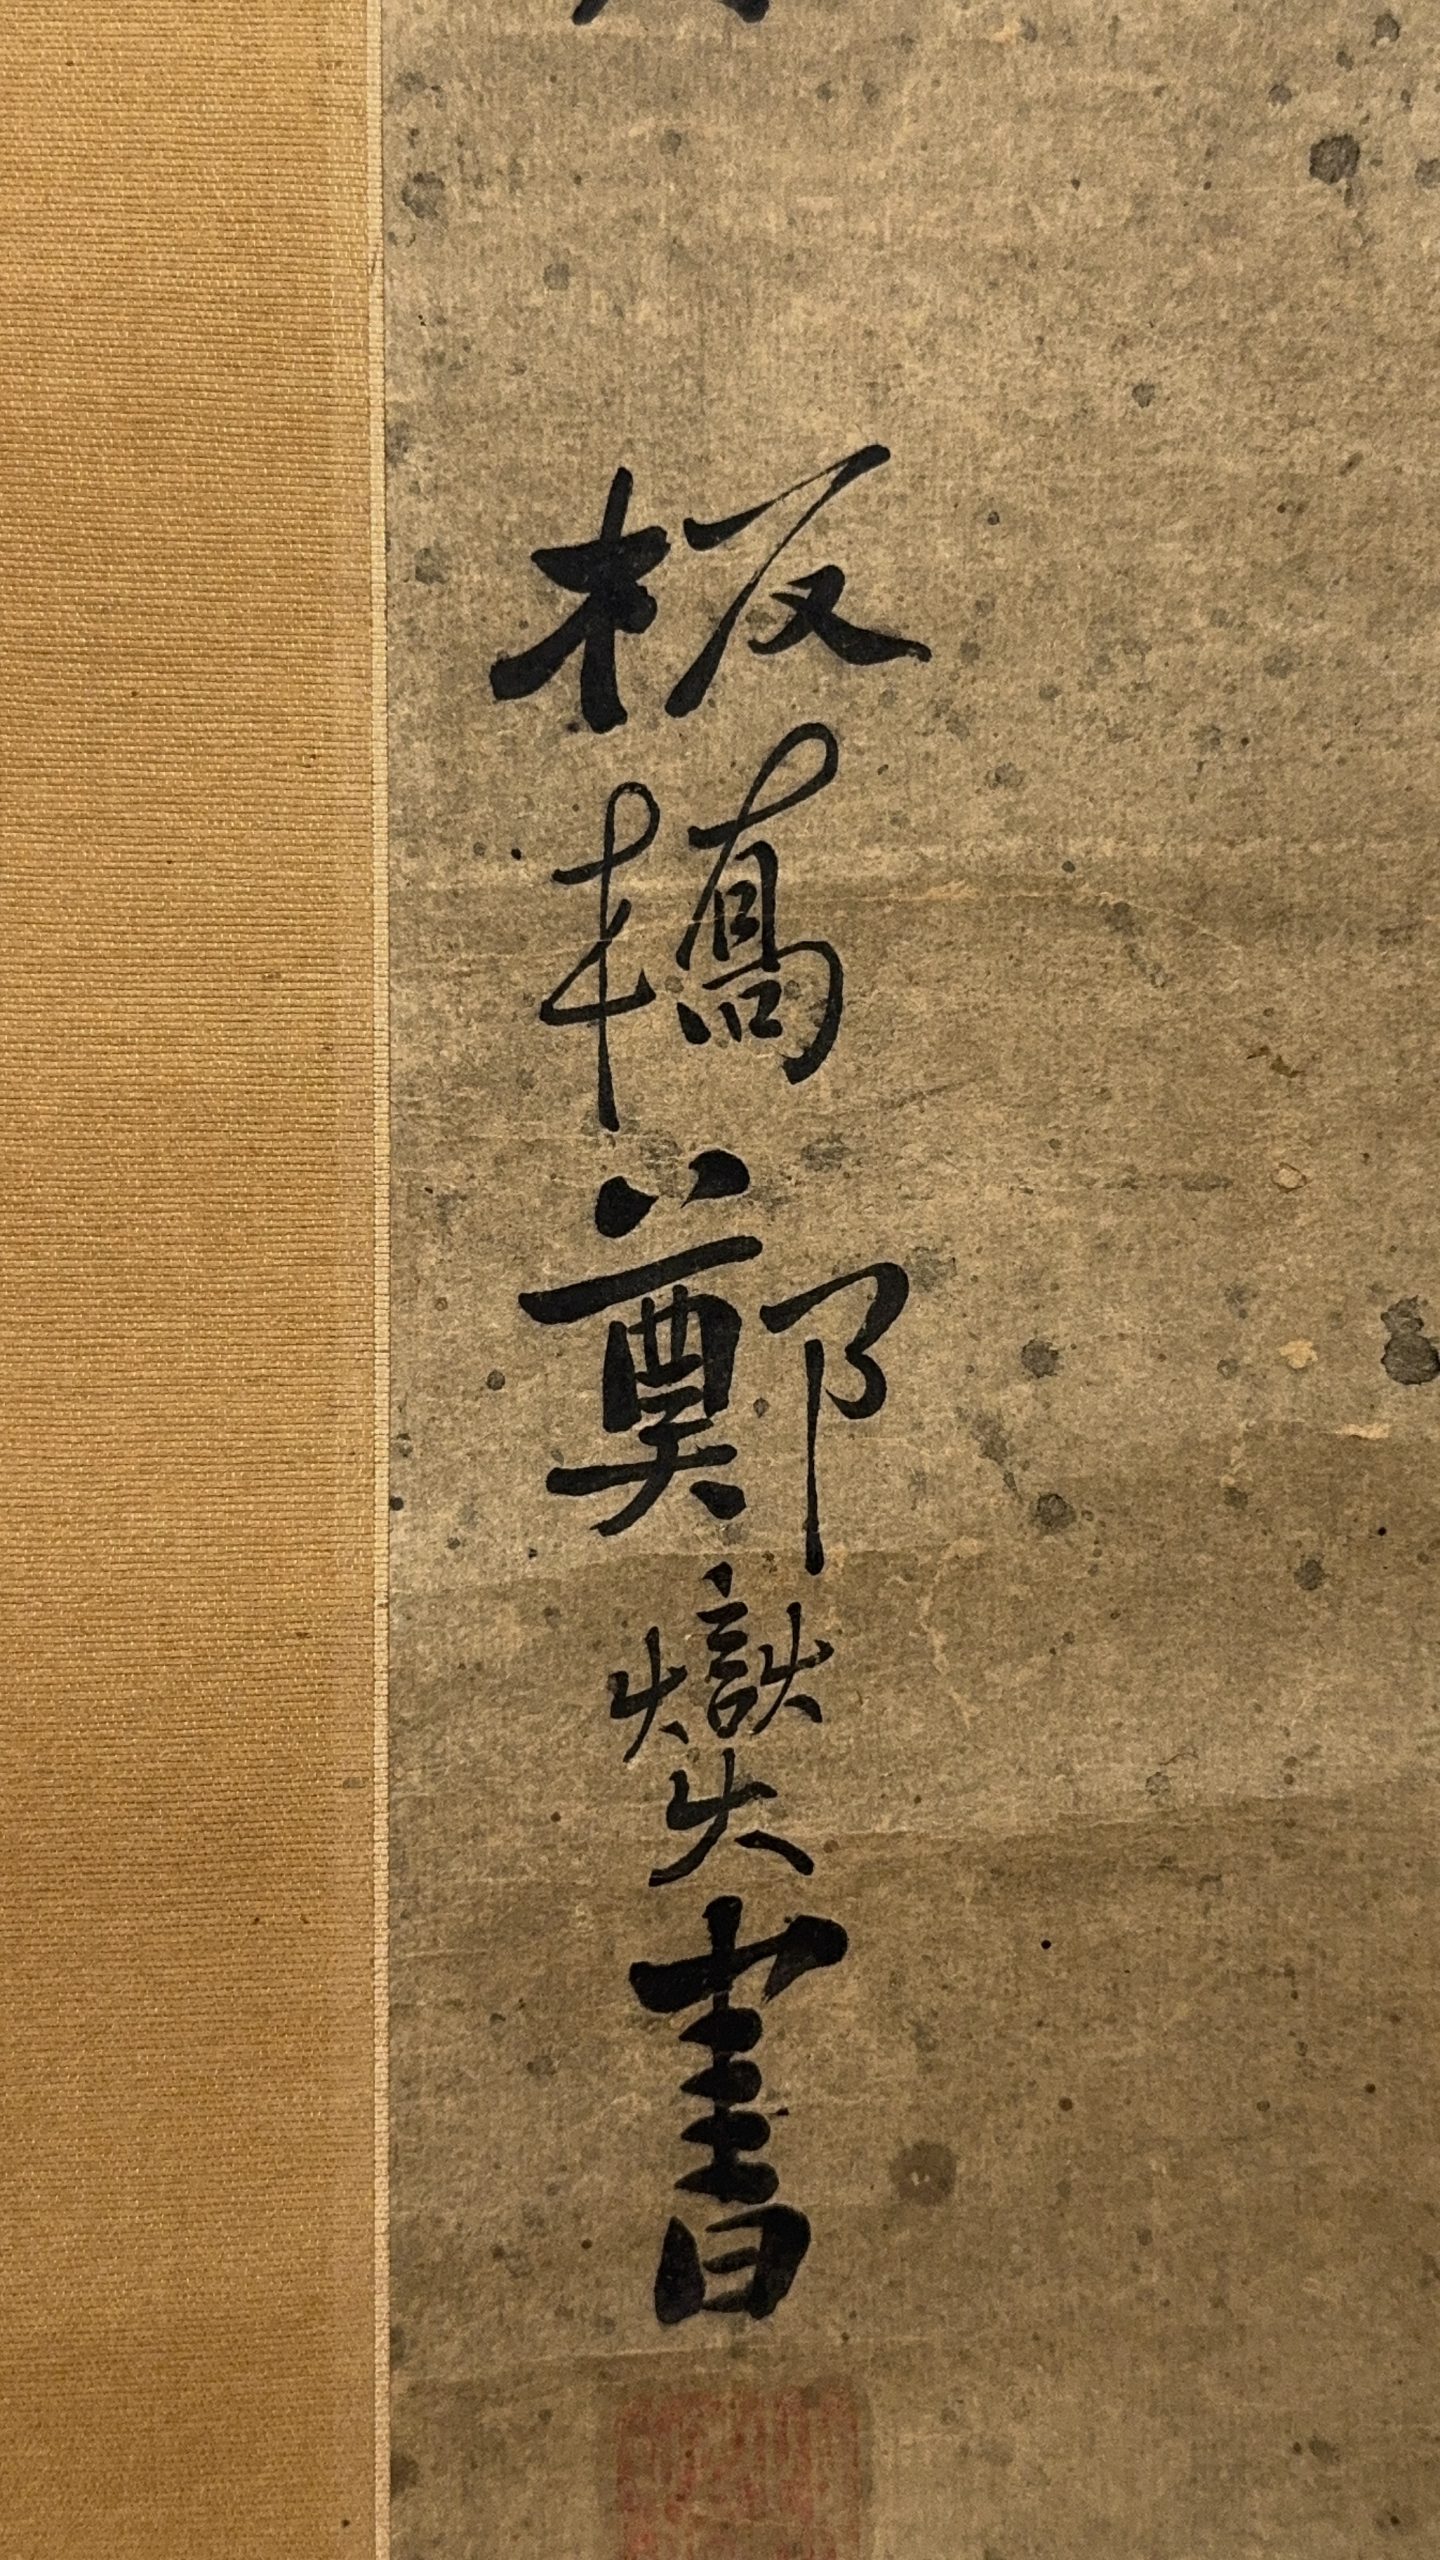 板橋鄭燮書